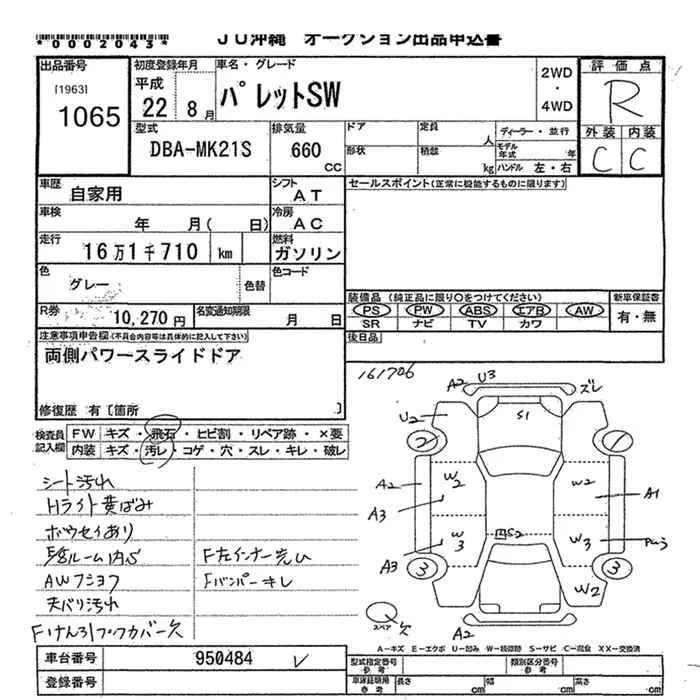 *0002043*
JU沖縄 オークション出品申込書
出品番号
[1963]
1065
初度登録年月
平成
22 8月
車名・グレード
パレットSW
2WD
・
4WD
評価点
R
外装 内装
C C
型式
DBA-MK21S
排気量
660
CC
ドア
形状
定員
人
積載
kg
ディーラー・並行
モデル年式 年
ハンドル 左・右
車歴
自家用
シフト
AT
セールスポイント(正常に機能するものに限ります)
車検
年 月( 日)
冷房
AC
走行
16万1千710 km
燃料
ガソリン
色
グレー
色替
色コード
R券
10,270円
名変通知期限
月 日
装備品 (純正品に限り○をつけてください)
PS PW ABS エアB AW
SR ナビ TV カワ
新車保証書
有・無
後日品
注意事項申告欄(不具合内容等は具体的に記入して下さい)
両側パワースライドドア
修復歴 有[箇所 ]
検査員
記入欄
FW キズ・飛石・ヒビ割・リペア跡・×要
内装 キズ・汚レ・コゲ・穴・スレ・キレ・破レ
シート汚れ
Hライト黄ばみ
ボウセイあり
AWフショク
天バリ汚れ
Fバンパーキレ
161706
A2 U3 ズレ
U2 S1
2 1
A2 W2 W2 A1
A3
W3 S2 W3
A3
3 3
W2
スペア 欠
A2
A-キズ E-エクボ U-凹み W-補修跡 S-サビ C-腐食 XX-交換済
車台番号
950484
登録番号
型式指定番号
参考
類別区分番号
参考
車庫証明用
参考
長さ cm
幅 cm
高さ cm